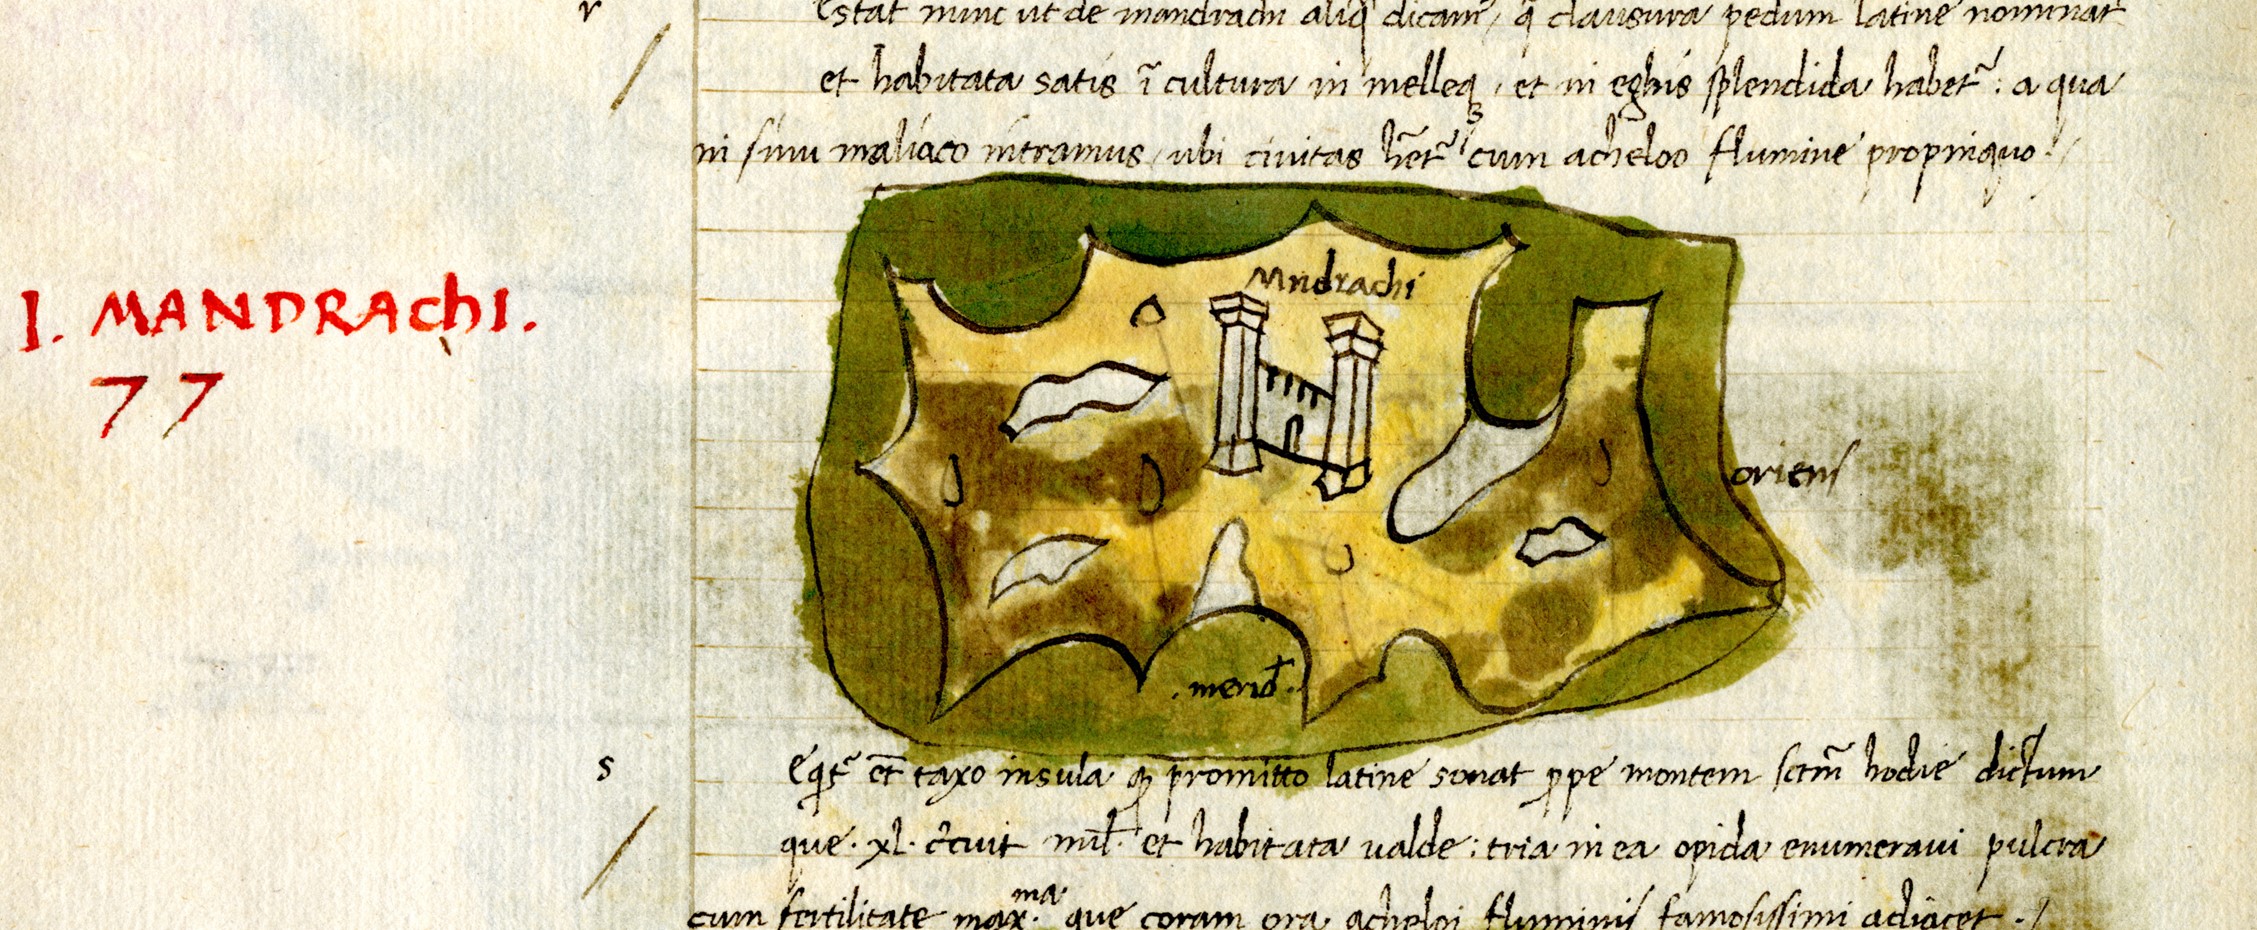 r
Estat nunc ut de mandrachi aliq̃ dicam̃, q̃ clausura pedum latine nominat̃
et habitata satis ĩ cultura in melleq3, et in eghis splendida habet̃: a qua
in sinu maliaco intramus, ubi civitas hẽt̃ cum acheloo flumine propinquo.
I. MANDRAChI.
77
Mndrachi
oriens
.merid.
s
Eqt̃ et̃ taxo insula promitto latine sonat ꝓpe montem sctm̃ hodie dictum
que. xl. c̃cuit mil. et habitata valde: tria in ea opida enumeravi pulcra
cum fertilitate max.ma que coram ora acheloi fluminis famosissimi adiacet.